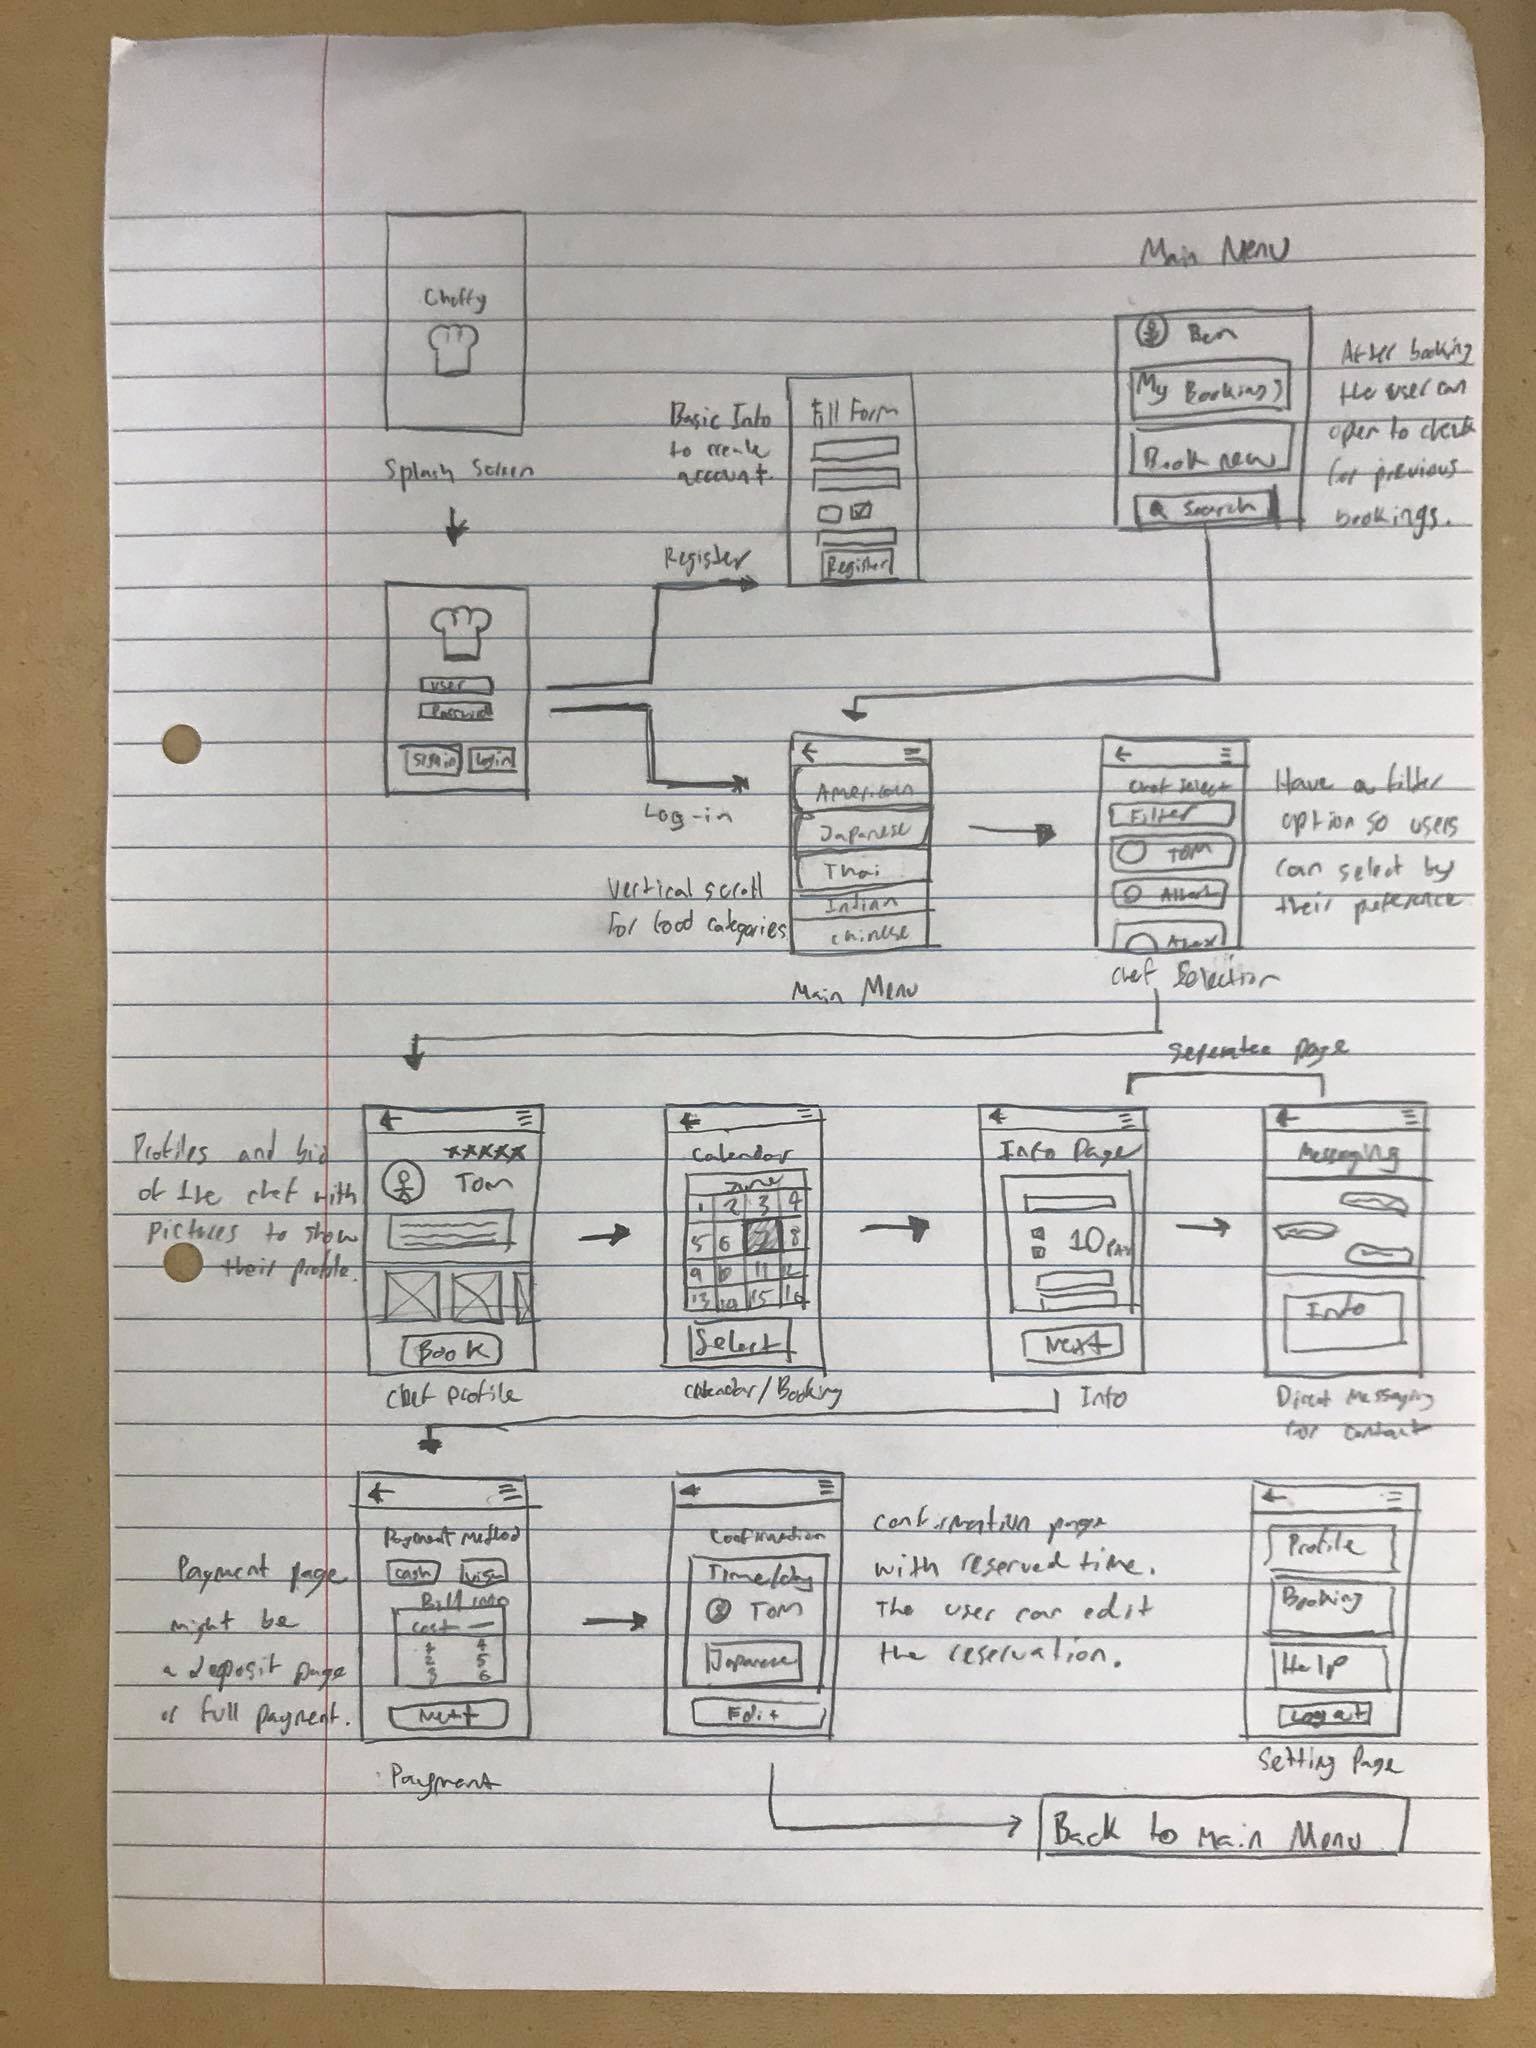 Cheffy
Splash Screen
user
Password
Signin
Login
Register
Log-in
Basic Info
to create
account.
Fill Form
Register
Main Menu
Ben
My Bookings
Book new
Search
After booking
the user can
open to check
for previous
bookings.
American
Japanese
Thai
Indian
Chinese
Vertical scroll
For food categories
Main Menu
Chef Select
Filter
TOM
Albert
Alex
Chef Selection
Have a filter
option so users
can select by
their preference
Seperatee page
Profiles and bio
of the chef with
pictures to show
their profile.
*****
TOM
Book
Chef Profile
Calendar
June
1 2 3 4
5 6 8
9 10 11 12
13 14 15 16
Select
Calendar/Booking
Info Page
10
Next
Info
Messaging
Info
Direct Messaging
For contact
Payment page
might be
a deposit page
or full payment.
Payment Method
cash
visa
Bill info
cost
1 4
2 5
3 6
Next
Payment
Confirmation
Time/day
TOM
Japanese
Edit
confirmation page
with reserved time.
The user can edit
the reservation.
Profile
Booking
Help
Logout
Setting Page
Back to Main Menu